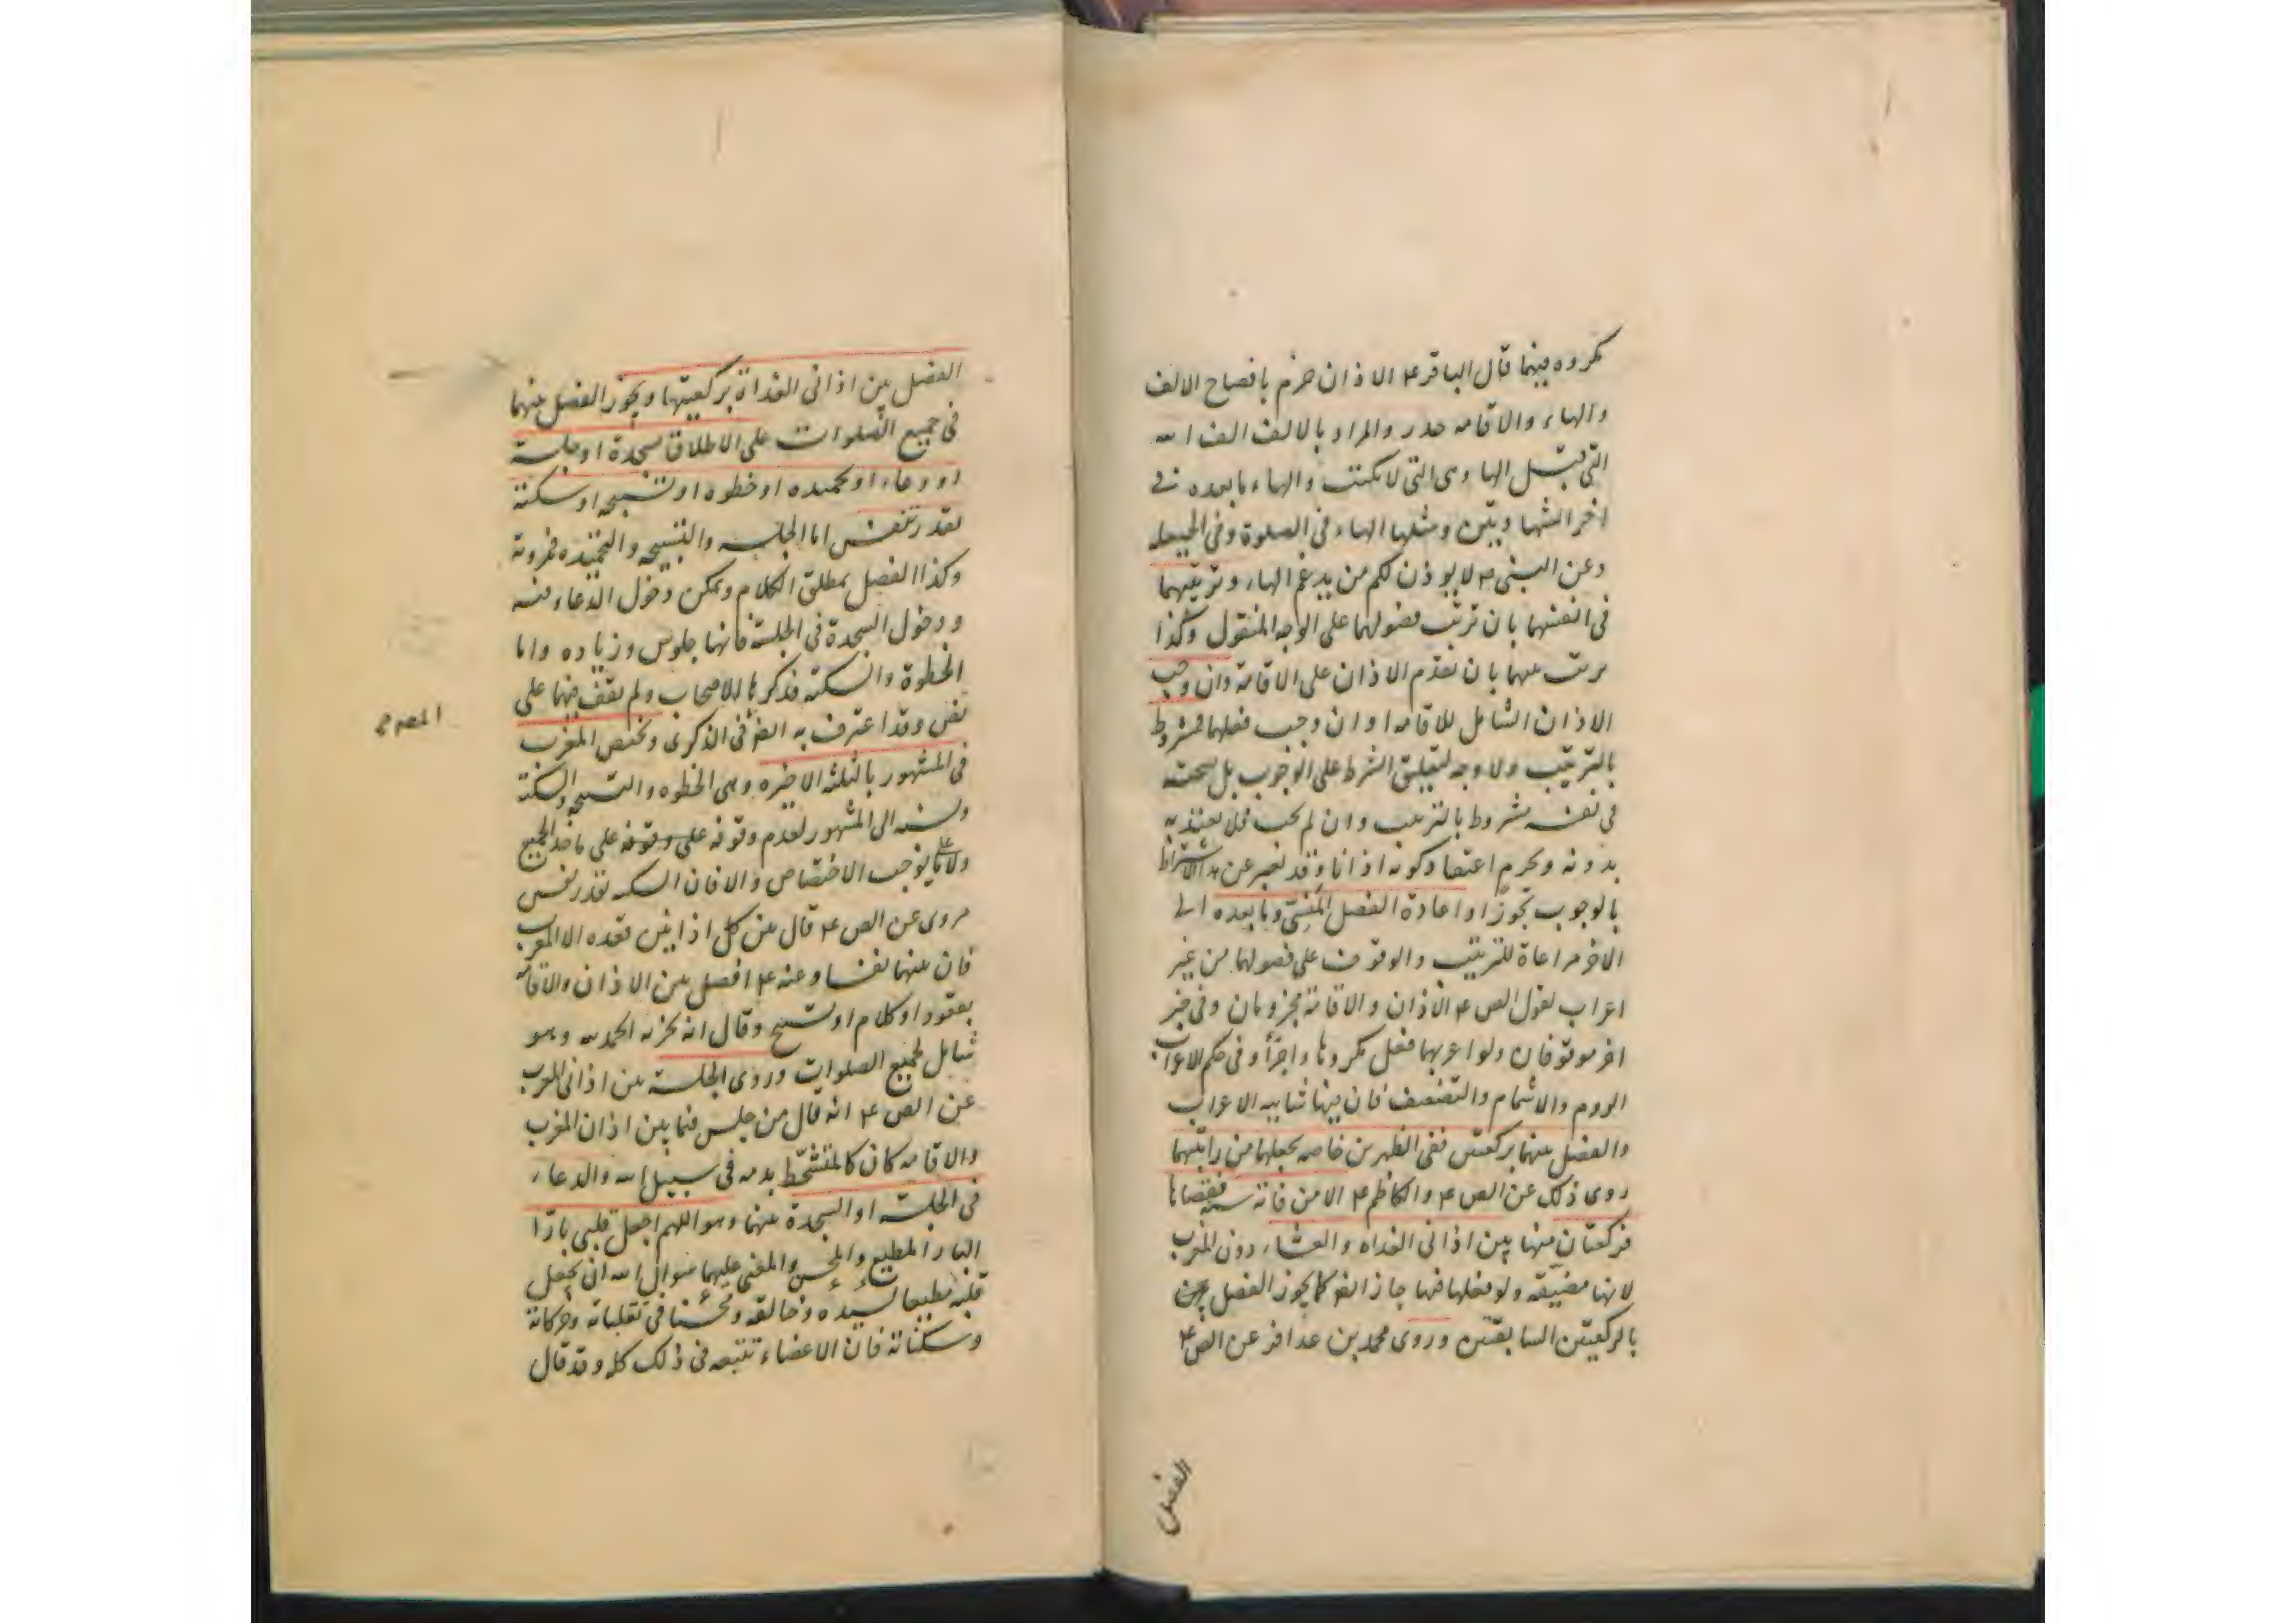 مكروه فيهما قال الباقر ع الاذان جزم بافصاح الالف
والهاء والاقامه حدر والمراد بالالف الف الله
التي قبل الها وهى التى لا تكتب والهاء ما بعده في
اخر الشهادتين ومثلها الهاء فى الصلوة وفى الحيعله
وعن النبى ص لا يوذن لكم من يدغم الهاء وترتيبهما
فى انفسهما بان ترتب فصولهما على الوجه المنقول وكذا
يرتب بينهما بان تقدم الاذان على الاقامة وان وجب
الاذان الشامل للاقامه او ان وجب فعلهما مشروط
بالترتيب ولا وجه لتعليق الشرط على الوجوب بل صحته
في نفسه مشروط بالترتيب وان لم يجب فلا يعتد به
بدونه ويحرم اعتقاد كونه اذانا وقد يعبر عن هذا الاشتراط
بالوجوب تجوزا واعادة الفصل المنسى وما بعده الى
الاخر مراعاة للترتيب والوقوف على فصولهما من غير
اعراب لقول الص ع الاذان والاقامة مجزومان وفى خبر
اخر موقوفان ولو اعربهما فعل مكروها واجزأ وفى حكم الاعراب
الروم والاشمام والتضعيف فان فيها شايبه الاعراب
والفصل بينهما بركعتين ففى الظهرين خاصه يجعلها من راتبتهما
روى ذلك عن الص ع والكاظم ع الا من فاتة سنه فقضاها
فركعتان منها بين اذانى الغداه والعشاء دون المغرب
لانها مضيقه ولو فعلها فيها جاز ايضا كما يجوز الفصل
بالركعتين السابقتين وروى محمد بن عذافر عن الص ع
الفصل
الفصل بين اذانى الغداة بركعتيها ويجوز الفصل بينهما
فى جميع الصلوات على الاطلاق بسجدة او جلسة
او دعاء او تحميده او خطوه او تسبيحه او سكتة
بقدر تنفس اما الجلسه والتسبيحه والتحميده فمروية
وكذا الفصل بمطلق الكلام ويمكن دخول الدعاء فيه
ودخول السجدة فى الجلسة فانها جلوس وزياده واما
الخطوة والسكته فذكرها الاصحاب ولم يقف فيهما على
نص وقد اعترف به المص فى الذكرى وتختص المغرب
المصه ح
فى المشهور بالثلثه الاخيره وهى الخطوه والتسبيحه والسكتة
ونسبه الى المشهور لعدم وقوفه على وقوفه على ماخذ الجميع
ولا على ما يوجب الاختصاص والا فان السكته بقدر نفس
مروى عن الص ع قال بين كل اذانين قعده الا المغرب
فان بينهما نفسا وعنه ع افصل بين الاذان والاقامة
بقعود او كلام او تسبيح وقال انه يجزيه الحمد لله وهو
شامل لجميع الصلوات وروى الجلسة بين اذانى المغرب
عن الص ع انه قال من جلس فيما بين اذان المغرب
والاقامه كان كالمتشحط بدمه فى سبيل الله والدعاء
فى الجلسة او السجدة بينهما وهو اللهم اجعل قلبى بارا
البار المطيع والمحسن والمعنى عليهما سوال الله ان يجعل
قلبه مطيعا لسيده وخالقه ومحسنا فى تقلباته وحركاته
وسكناته فان الاعضاء تتبعه فى ذلك كله وقد قال